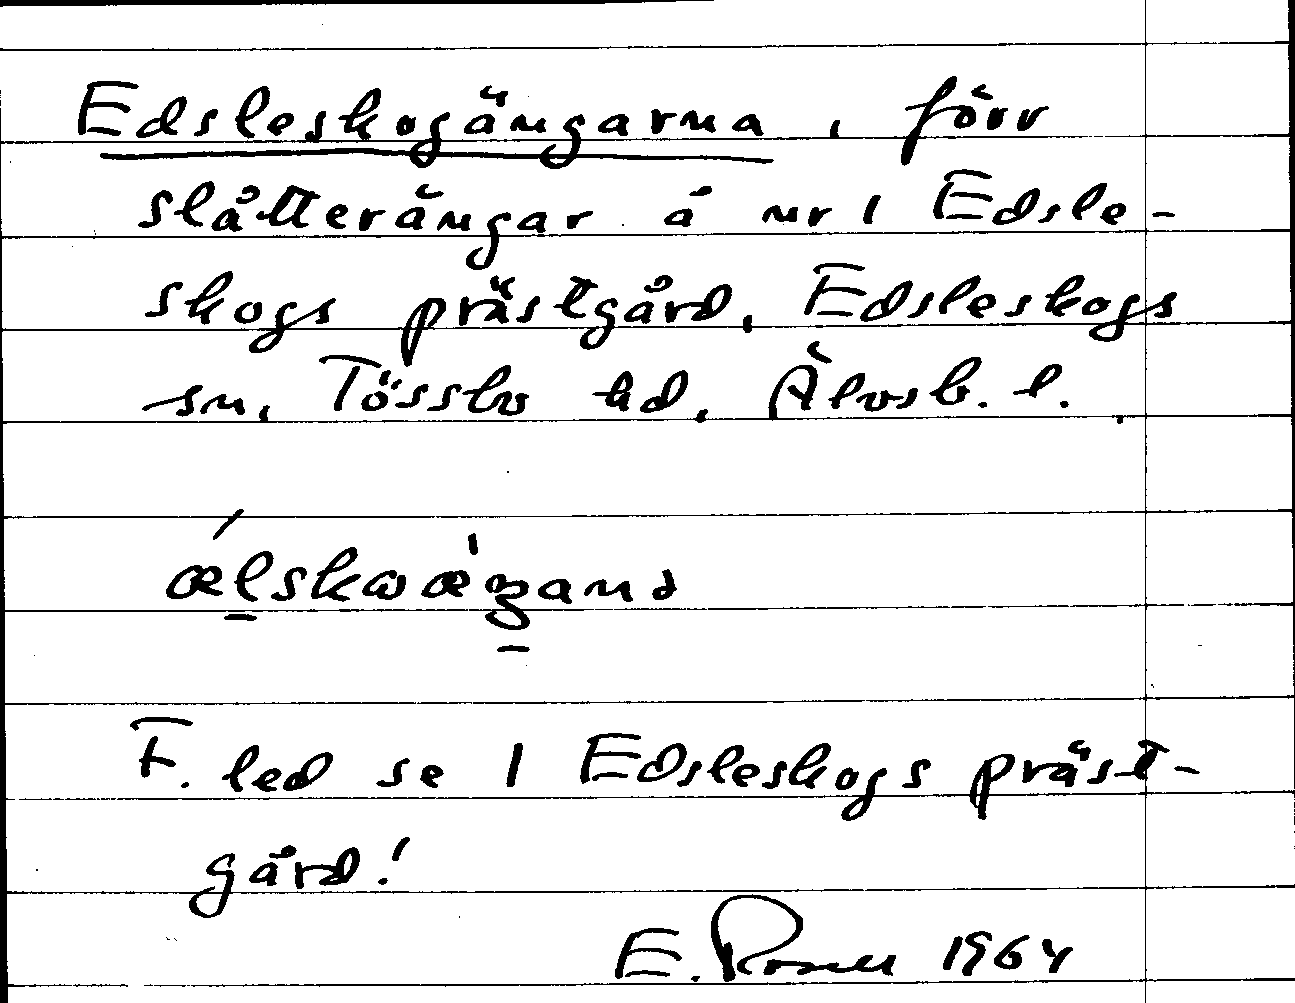 Edsleskogängarna, förr
slåtterängar å nr 1 Edsle-
skogs prästgård, Edsleskogs
sn, Tössbo hd, Älvsb. l.
F. led se 1 Edsleskogs präst-
gård!
E. Rosell 1964